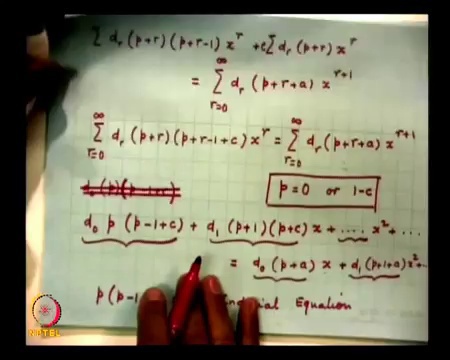 Σ d_r (p+r)(p+r-1) x^r + c Σ d_r (p+r) x^r
= Σ_{r=0}^{∞} d_r (p+r+a) x^{r+1}
Σ_{r=0}^{∞} d_r (p+r)(p+r-1+c) x^r = Σ_{r=0}^{∞} d_r (p+r+a) x^{r+1}
p=0 or 1-c
d_0 p (p-1+c) + d_1 (p+1)(p+c) x + .... x^2 + ...
= d_0 (p+a) x + d_1 (p+1+a) x^2 ...
p(p-1 Equation
NPTEL